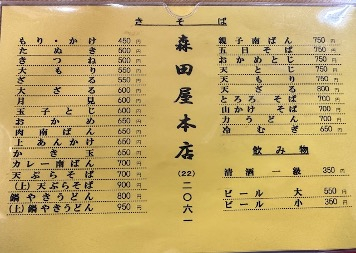 きそば
もり・かけ 450円
たぬき 500円
きつね 500円
大もり 550円
ざる 550円
大ざる 600円
月見 600円
玉子とじ 600円
おかめ 650円
肉南ばん 650円
上あんかけ 650円
かき玉 650円
カレー南ばん 700円
天ぷらそば 700円
(上)天ぷらそば 900円
鍋やきうどん 800円
(上)鍋やきうどん 950円
森田屋本店
(22)二〇六一
親子南ばん 750円
五目そば 750円
おかめとじ 750円
天とじ 750円
天もり 750円
天ざる 800円
とろろそば 700円
山かけそば 700円
力うどん 700円
冷むぎ 650円
飲み物
清酒一級 350円
ビール大 550円
ビール小 350円